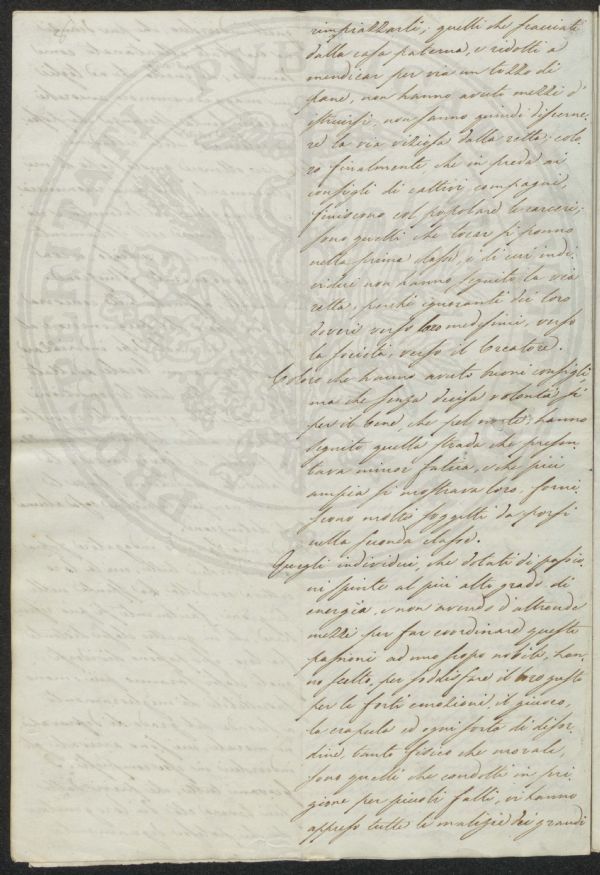 rimpiazzarli; quelli che scacciati
dalla casa paterna, e ridotti a
mendicar per via un tozzo di
pane, non hanno avuto mezzi d'
istruirsi, non sanno quindi discerne:
re la via viziosa dalla retta; colo:
ro finalmente che in preda ai
consigli di cattivi compagni,
finiscono col popolare le carceri;
sono quelli che locar si ponno
nella prima classe, i di cui indi
vidui non hanno seguito la via
retta, perchè ignoranti dei loro
doveri verso loro medesimi, verso
la società, verso il Creatore.
Coloro che hanno avuto buoni consigli,
ma che senza decisa volontà sì
per il bene, che pel male, hanno
seguito quella strada che presen
tava minor fatica, e che più
ampia si mostrava loro, forni
scono molti soggetti da porsi
nella seconda classe.
Quegli individui, che dotati di passio
ni spinte al più alto grado di
energia, e non avendo d'altronde
mezzi per far coordinare queste
passioni ad uno scopo nobile, han
no scelto, per soddisfare il loro gusto
per le forti emozioni, il giuoco,
la crapula ed ogni sorta di disor
dine, tanto fisico che morale,
sono quelli che condotti in pri
gione per piccoli falli, vi hanno
appreso tutte le malizie dei grandi
PROSPERITATI PUBLICAE